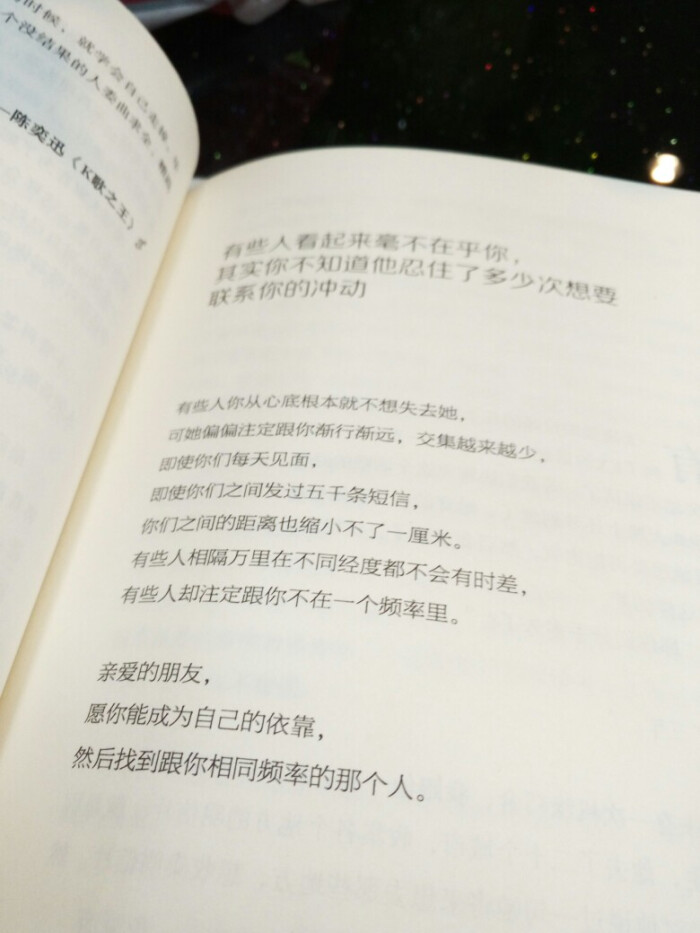 时候，就学会自己
个没结果的人委曲求全，
—陈奕迅《K歌之王》
有些人看起来毫不在乎你，
其实你不知道他忍住了多少次想要
联系你的冲动
有些人你从心底根本就不想失去她，
可她偏偏注定跟你渐行渐远，交集越来越少，
即使你们每天见面，
即使你们之间发过五千条短信，
你们之间的距离也缩小不了一厘米。
有些人相隔万里在不同经度都不会有时差，
有些人却注定跟你不在一个频率里。
亲爱的朋友，
愿你能成为自己的依靠，
然后找到跟你相同频率的那个人。